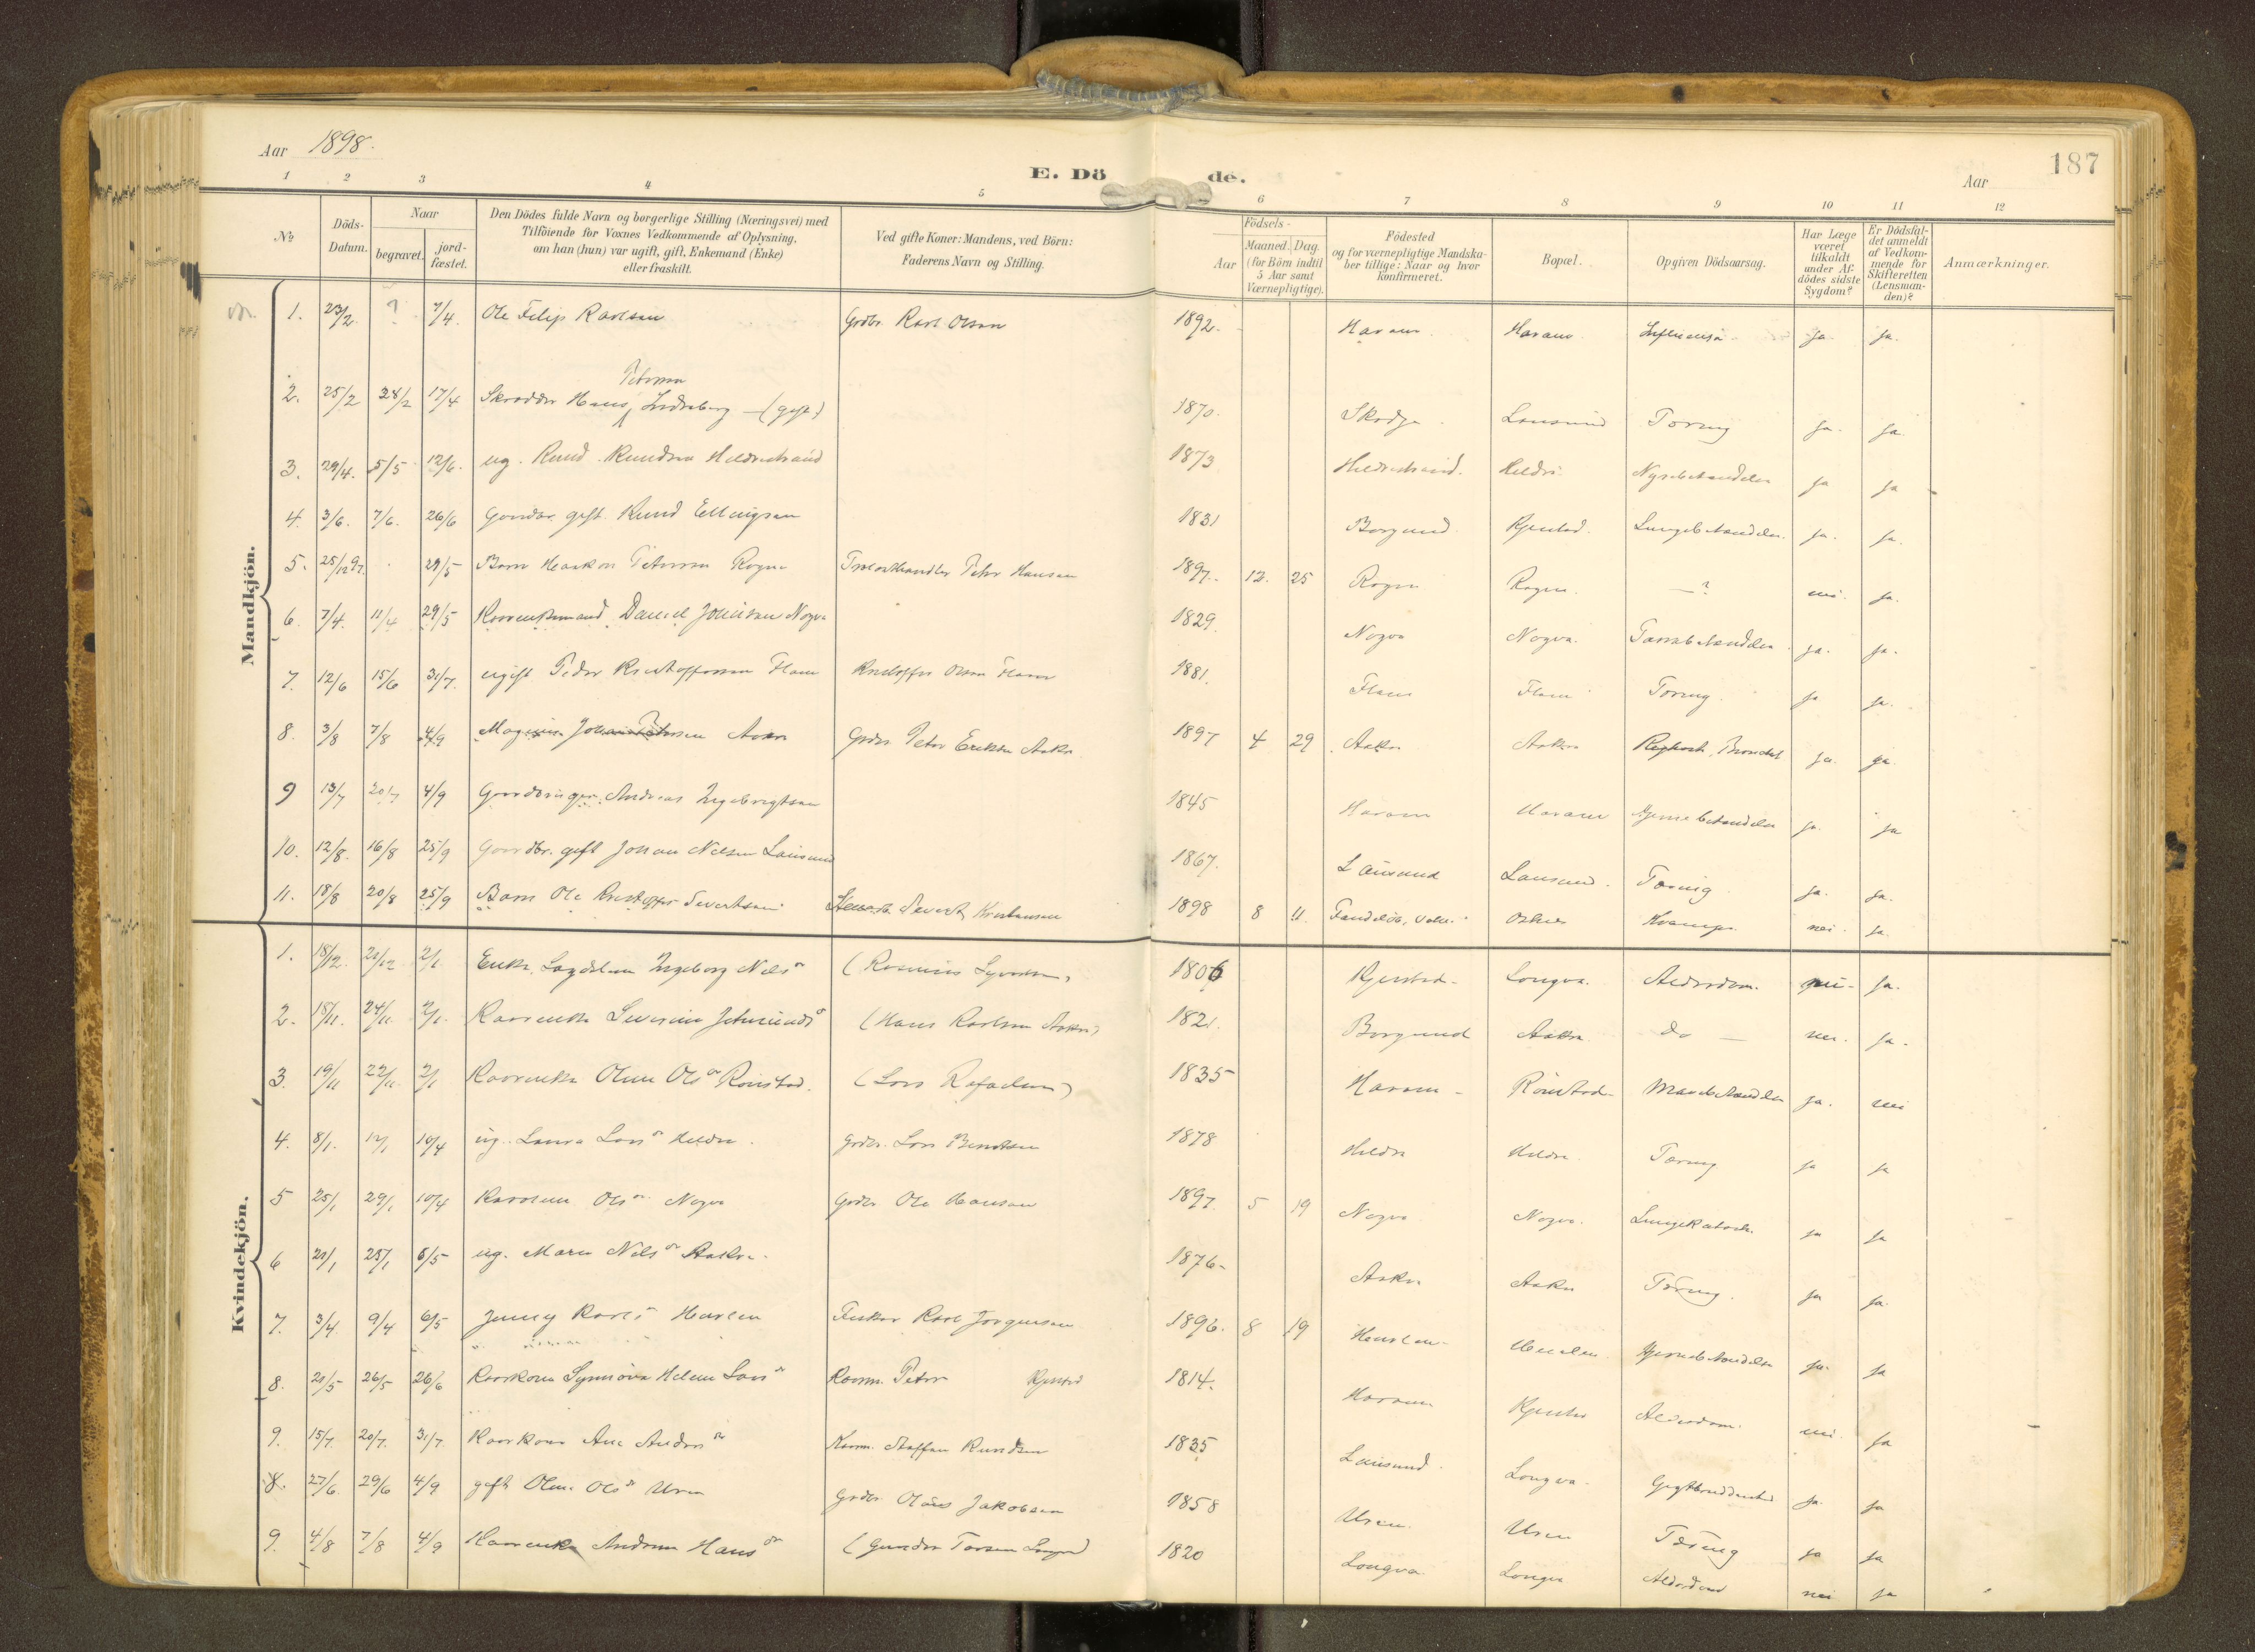 Aar 1898.
E. Döde.
Aar
187
1 2 3 4 5 6 7 8 9 10 11 12
№
Döds-Datum.
Naar
begravet.
jord-fæstet.
Den Dödes fulde Navn og borgerlige Stilling (Næringsvei) med Tilföiende for Voxnes Vedkommende af Oplysning, om han (hun) var ugift, gift, Enkemand (Enke) eller fraskilt.
Ved gifte Koner: Mandens, ved Börn: Faderens Navn og Stilling.
Födsels-
Aar
Maaned. Dag.
(for Börn indtil 5 Aar samt Værnepligtige).
Födested og for værnepligtige Mandskaber tillige: Naar og hvor konfirmeret.
Bopæl.
Opgiven Dödsaarsag.
Har Læge været tilkaldt under Afdödes sidste Sygdom?
Er Dödsfaldet anmeldt af Vedkommende for Skifteretten (Lensmanden)?
Anmærkninger.
Mandkjön.
1. 23/2 ? 7/4. Ole Filip Karlsen Grdbr. Karl Olsen 1892. Haram. Haram Influensa ja. ja.
2. 25/2 28/2 17/4 Skrædder Hans Peterson Lundeberg (gift) 1870. Skodje. Lausund Tæring ja. ja.
3. 29/4. 5/5 12/6. ug. Knud Knudsen Hildrestrand 1873 Hildrestrand. Hildre. Nyrebetændelse ja ja
4. 3/6. 7/6. 26/6 Gaardbr. gift. Knud Ellingsen 1831 Borgund. Kjerstad. Lungebetændelse. ja. ja.
5. 25/12 97. 29/5 Barn Haakon Peterson Rogne Peter Hansen 1897. 12. 25 Rogne Rogne. — ? nei. ja.
6. 7/4. 11/4 29/5 Kaarenkemand Daniel Johnsen Nogva 1829. Nogva Nogva. Tarmbetændelse ja. ja.
7. 12/6 15/6 31/7. ugift Peder Kristofferson Flem Kristoffer Olsen Flem 1881. Flem Flem Tæring. ja ja.
8. 3/8 7/8 4/9 Aakre Grdbr. Peter Eriksen Aakre 1897 4 29 Aakre Aakre Bronchit ja. ja
9 13/7 20/7 4/9 Gaardbruger Andreas Ingebrigtsen 1845 Haram Haram Hjernebetændelse ja. ja
10. 12/8. 16/8 25/9 Gaardbr. gift Johan Nilsen Lausund 1867. Lausund Lausund. Tæring ja. ja.
11. 18/8 20/8 25/9 Barn Ole Kristoffer Severtsen Severt Kristiansen 1898 8 11. Nei. ja
Kvindekjön.
1. 18/12. 21/12 2/1 Enke Ingeborg Nilsdr (Rasmus Syversen) 1806 Kjerstad. Longva. Alderdom. nei. ja.
2. 18/11. 24/11 2/1. Kaarenke Severine (Hans Karlsen Aakre) 1821. Borgund Aakre do nei. ja.
3. 19/11 22/11 2/1 Kaarenke Oline Olsdr Rönstad. (Lars Rafaelsen) 1835 Haram Rönstad Mavebetændelse ja. nei
4. 8/1. 12/1 10/4 ug. Laura Larsdr Hildre. Grdbr. Lars Berntsen 1878 Hildre Hildre. Tæring ja ja
5 25/1 29/1 10/4 Karoline Olsdr Nogva Grdbr Ole Hansen 1897. 5 19 Nogva Nogva. Lungekatarh. ja ja
6 21/1 25/1 6/5 ug. Maren Nilsdr Aakre. 1876. Aakre Aakre Tæring. ja ja.
7. 3/4. 9/4 6/5 Jenny Karlsdr Hauslen Fisker Karl Jørgensen 1896. 8 19 Hauslen Hjernebetændelse ja. ja
8. 21/5 26/5 26/6 Kaarkone Synnöva Helene Larsdr Kaarm. Peter Kjerstad 1814. Haram Kjerstad Alderdom. nei. ja
9. 15/7. 20/7. 31/7. Kaarkone Ane Andersdr Kaarm. Steffen Knudsen 1835 Lausund. Longva. ja. ja
8. 27/6. 29/6 4/9 gift Oline Olsdr Uren Grdbr. Olaus Jakobsen 1858 Uren. Uren Tæring ja ja
9. 4/8 7/8 4/9 Kaarenke Andrine Hansdr 1820 Longva Longva Alderdom nei ja